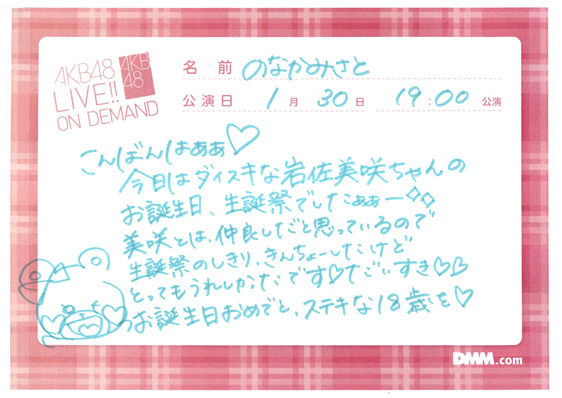 AKB48
LIVE!!
ON DEMAND
AKB
48
名前 のなかみさと
公演日 1月30日 19:00 公演
こんばんはぁぁ♡
今日はダイスキな岩佐美咲ちゃんの
お誕生日、生誕祭でしたぁぁー
美咲とは、仲良しだと思っているので
生誕祭のしきり、きんちょーしたけど
とってもうれしかたです♡だいすき♡♡
お誕生日おめでと、ステキな18歳を♡
DMM.com